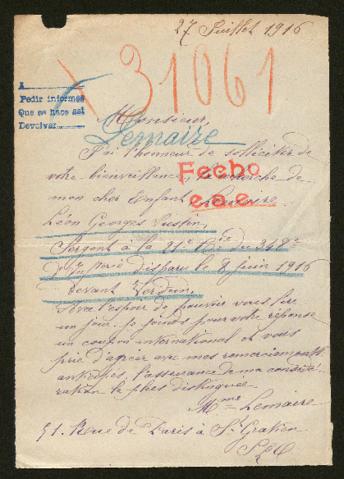 27 Juillet 1916
31061
A
Pedir informes
Que se hace asi
Devolver
Monsieur,
Lemaire
J'ai l'honneur de solliciter de
votre bienveillance, la recherche de
Fecho
e.a.e.
mon cher Enfant Lemaire
Léon Georges Justin,
Sergent à la 21e Cie du 348e
d'Infrie disparu le 8 Juin 1916
devant Verdun.
l'espoir de pouvoir vous lire
un jour, je joins pour votre réponse
un coupon international et vous
prie d'agréer avec mes remerciements
anticipés, l'assurance de ma considé-
ration la plus distinguée.
Mme Lemaire
51. Rue de Paris à St Gratien
S&O